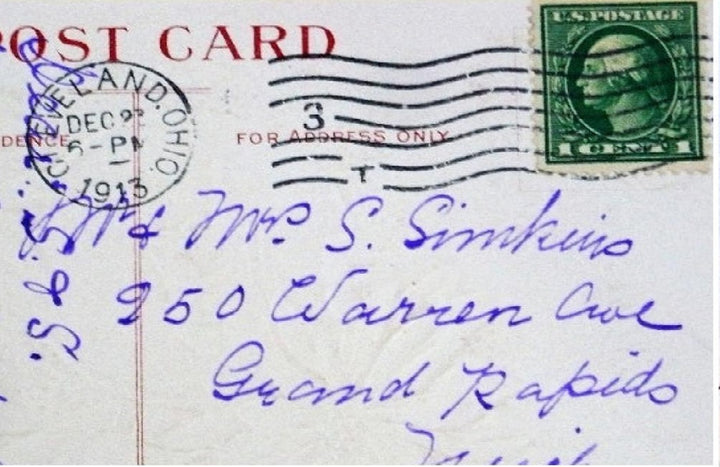 POST CARD
CLEVELAND, OHIO.
DEC 22
6-PM
1913
3
1
U.S. POSTAGE
1 CENT 1
FOR ADDRESS ONLY
Mr & Mrs. S. Simkins
250 Warren Ave
Grand Rapids
Mich